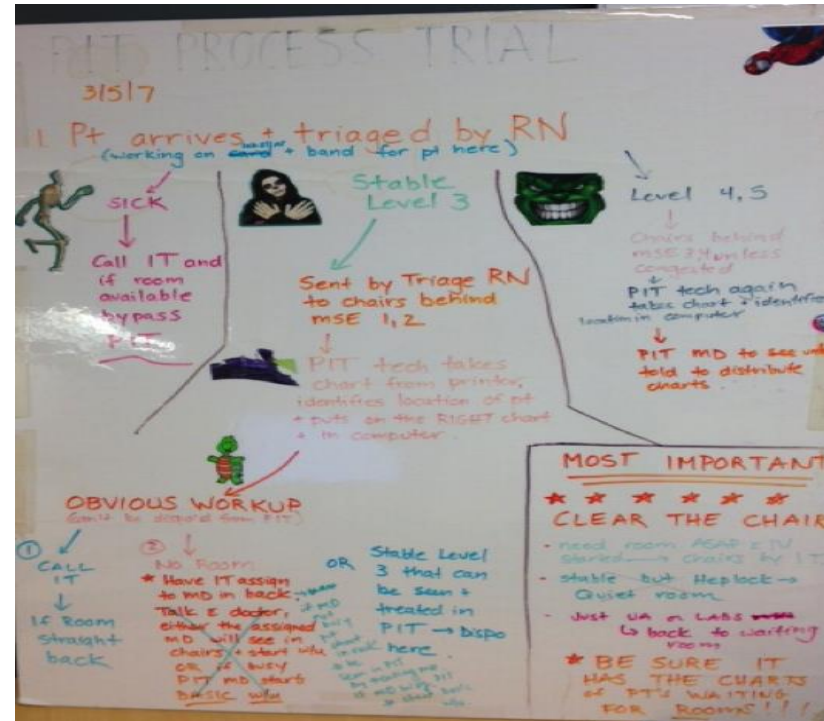 PIT PROCESS TRIAL
3/5/7
1. Pt arrives + triaged by RN
(working on + band for pt here)
SICK
Call IT and
if room
available
bypass
PIT
Stable
Level 3
Sent by Triage RN
to chairs behind
MSE 1, 2
PIT tech takes
chart from printer,
identifies location of pt
+ puts on the RIGHT chart
+ in computer.
Level 4, 5
Chairs behind
MSE 3, 4 unless
congested
PIT tech again
takes chart + identifies
location in computer
PIT MD to see
told to distribute
charts.
OBVIOUS WORKUP
(can't be from PIT)
① CALL
IT
If Room
straight
back
② No Room
★ Have IT assign
to MD in back.
Talk c̄ doctor,
either the assigned
MD will see in
chairs + start w/u
OR if busy
PIT MD start
BASIC w/u
if MD
busy
OR Stable Level
3 that can
be seen +
treated in
PIT → Dispo
here.
MOST IMPORTANT
★ ★ ★ ★ ★ ★
CLEAR THE CHAIR
- need room ASAP c̄ IV
started → chairs by IT
- stable but Heplock →
Quiet room
- Just UA or LABS
↳ back to waiting
room
★ BE SURE IT
HAS THE CHARTS
of PT'S WAITING
FOR ROOMS!!!